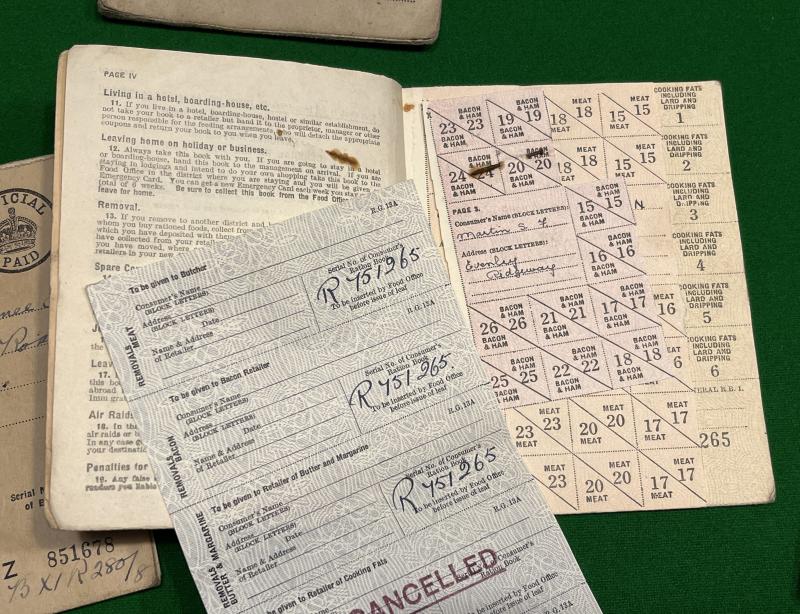 PAGE IV
Living in a hotel, boarding-house, etc.
11. If you live in a hotel, boarding-house, hostel or similar establishment, do
not take your book to a retailer but hand it to the proprietor, manager or other
person responsible for the feeding arrangements, who will detach the appropriate
coupons and return your book to you when you leave.
Leaving home on holiday or business.
12. Always take this book with you. If you are going to stay in a hotel
or boarding-house, hand this book to the management on arrival. If you are
staying in lodgings and intend to do your own shopping take this book to the
Food Office in the district where you are staying and you will be given
Emergency Card. You can get a new Emergency Card each week you stay
total of 6 weeks. Be sure to collect this book from the Food Office
leave for home.
Removal.
13. If you remove to another district and
whom you buy rationed foods, collect from
which you have deposited with them
have collected from your
you have moved, where
retailers in your new
Spare
Leav
this boo
abroad
Imm
Air Raids
18. In the
air raids or
In any case
your destinati
Penalties for
19. Any false
readers you liable
OFFICIAL
PAID
Serial N
of
Z 851678
B XI R 280/8
R.G. 13A
To be given to Butcher
Consumer's Name
(BLOCK LETTERS)
Address
(BLOCK LETTERS)
Date
Name & Address
of Retailer
REMOVALS MEAT
Serial No. of Consumer's
Ration Book
R 751965
To be inserted by Food Office
before issue of leaf
R.G. 13A
To be given to Bacon Retailer
Consumer's Name
(BLOCK LETTERS)
Address
(BLOCK LETTERS)
Date
Name & Address
of Retailer
REMOVALS BACON
Serial No. of Consumer's
Ration Book
R 751965
To be inserted by Food Office
before issue of leaf
R.G. 13A
To be given to Retailer of Butter and Margarine
Consumer's Name
(BLOCK LETTERS)
Address
(BLOCK LETTERS)
Date
Name & Address
of Retailer
REMOVALS BUTTER & MARGARINE
Serial No. of Consumer's
Ration Book
R 751965
To be inserted by Food Office
before issue of leaf
R.G. 13A
To be given to Retailer of Cooking Fats
Serial No. of Consumer's
Ration Book
CANCELLED
X BACON & HAM 23 23 BACON & HAM 19 19 MEAT 18 18 MEAT 15 15 COOKING FATS INCLUDING LARD AND DRIPPING 1
24 24 BACON & HAM 20 20 BACON & HAM 18 18 MEAT 15 15 MEAT COOKING FATS INCLUDING LARD AND DRIPPING 2
PAGE 3.
Consumer's Name (BLOCK LETTERS)
Martin S
Address (BLOCK LETTERS)
Evenley
Ridgeway
BACON & HAM 15 15 N COOKING FATS INCLUDING LARD AND DRIPPING 3
16 16 BACON & HAM COOKING FATS INCLUDING LARD AND DRIPPING 4
26 26 BACON & HAM 21 21 BACON & HAM 17 17 BACON & HAM MEAT 16 COOKING FATS INCLUDING LARD AND DRIPPING 5
25 25 BACON & HAM 22 22 BACON & HAM 18 18 BACON & HAM 16 COOKING FATS INCLUDING LARD AND DRIPPING 6
MEAT 23 23 MEAT 20 20 MEAT 17 17
R.B. 1.
265
MEAT 23 MEAT 20 20 MEAT 17 17 MEAT